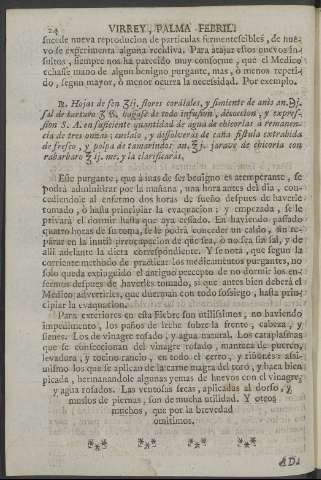 24 VIRREY, PALMA FEBRIL.
sucede nueva reproduccion de particulas fermentescibles, de nue-
vo se experimenta alguna recidiva. Para atajar estos nuevos in-
sultos, siempre nos ha parecido muy conforme, que el Medico
echasse mano de algun benigno purgante, mas, ò menos repeti-
do, segun mayor, ò menor ocurra la necessidad. Por exemplo.
℞. Hojas de sen ʒij, flores cordiales, y simiente de anis an. ℈j.
sal de tartaro ʒ ß. hagase de todo infusion, decoccion, y expres-
sion S. A. en suficiente quantidad de agua de chicorias à remanen-
cia de tres onzas; cuelalo, y dissolveràs de caña fistula extrahida
de fresco, y pulpa de tamarindos an. ℥j. jarave de chicoria con
rabarbaro ℥ij. me. y la clarificaràs.
Este purgante, que à mas de ser benigno es atemperante, se
podrà administrar por la mañana, una hora antes del dia, con-
cediendole al enfermo dos horas de sueño despues de haverle
tomado, ò hasta principiar la evaquacion: y empezada, se le
privarà el dormir hasta que aya cessado. En haviendo passado
quatro horas de su toma, se le podrà conceder un caldo, sin re-
parar en la inutil preocupacion de que sea, ò no sea sin sal, y de
alli adelante la dieta correspondiente. Y se nota, que segun la
corriente methodo de practicar los medicamentos purgantes, no
solo queda extinguido el antiguo precepto de no dormir los en-
fermos despues de haverles tomado, si que antes bien deberà el
Medico advertirles, que duerman con todo sossiego, hasta prin-
cipiar la evaquacion.
Para exteriores en esta Fiebre son utilissimos, no haviendo
impedimento, los paños de leche sobre la frente, cabeza, y
sienes. Los de vinagre rosado, y agua natural. Los cataplasmas
que se confeccionan del vinagre rosado, manteca de puerco,
levadura, y tocino rancio, en todo el cerro, y riñones: assi-
mismo los que se aplican de la carne magra del toro, y haca bien
picada, hermanandole algunas yemas de huevos con el vinagre,
y agua rosados. Las ventosas secas, aplicadas al dorso, y
muslos de piernas, son de mucha utilidad. Y otros
muchos, que por la brevedad
omitimos.
AD-